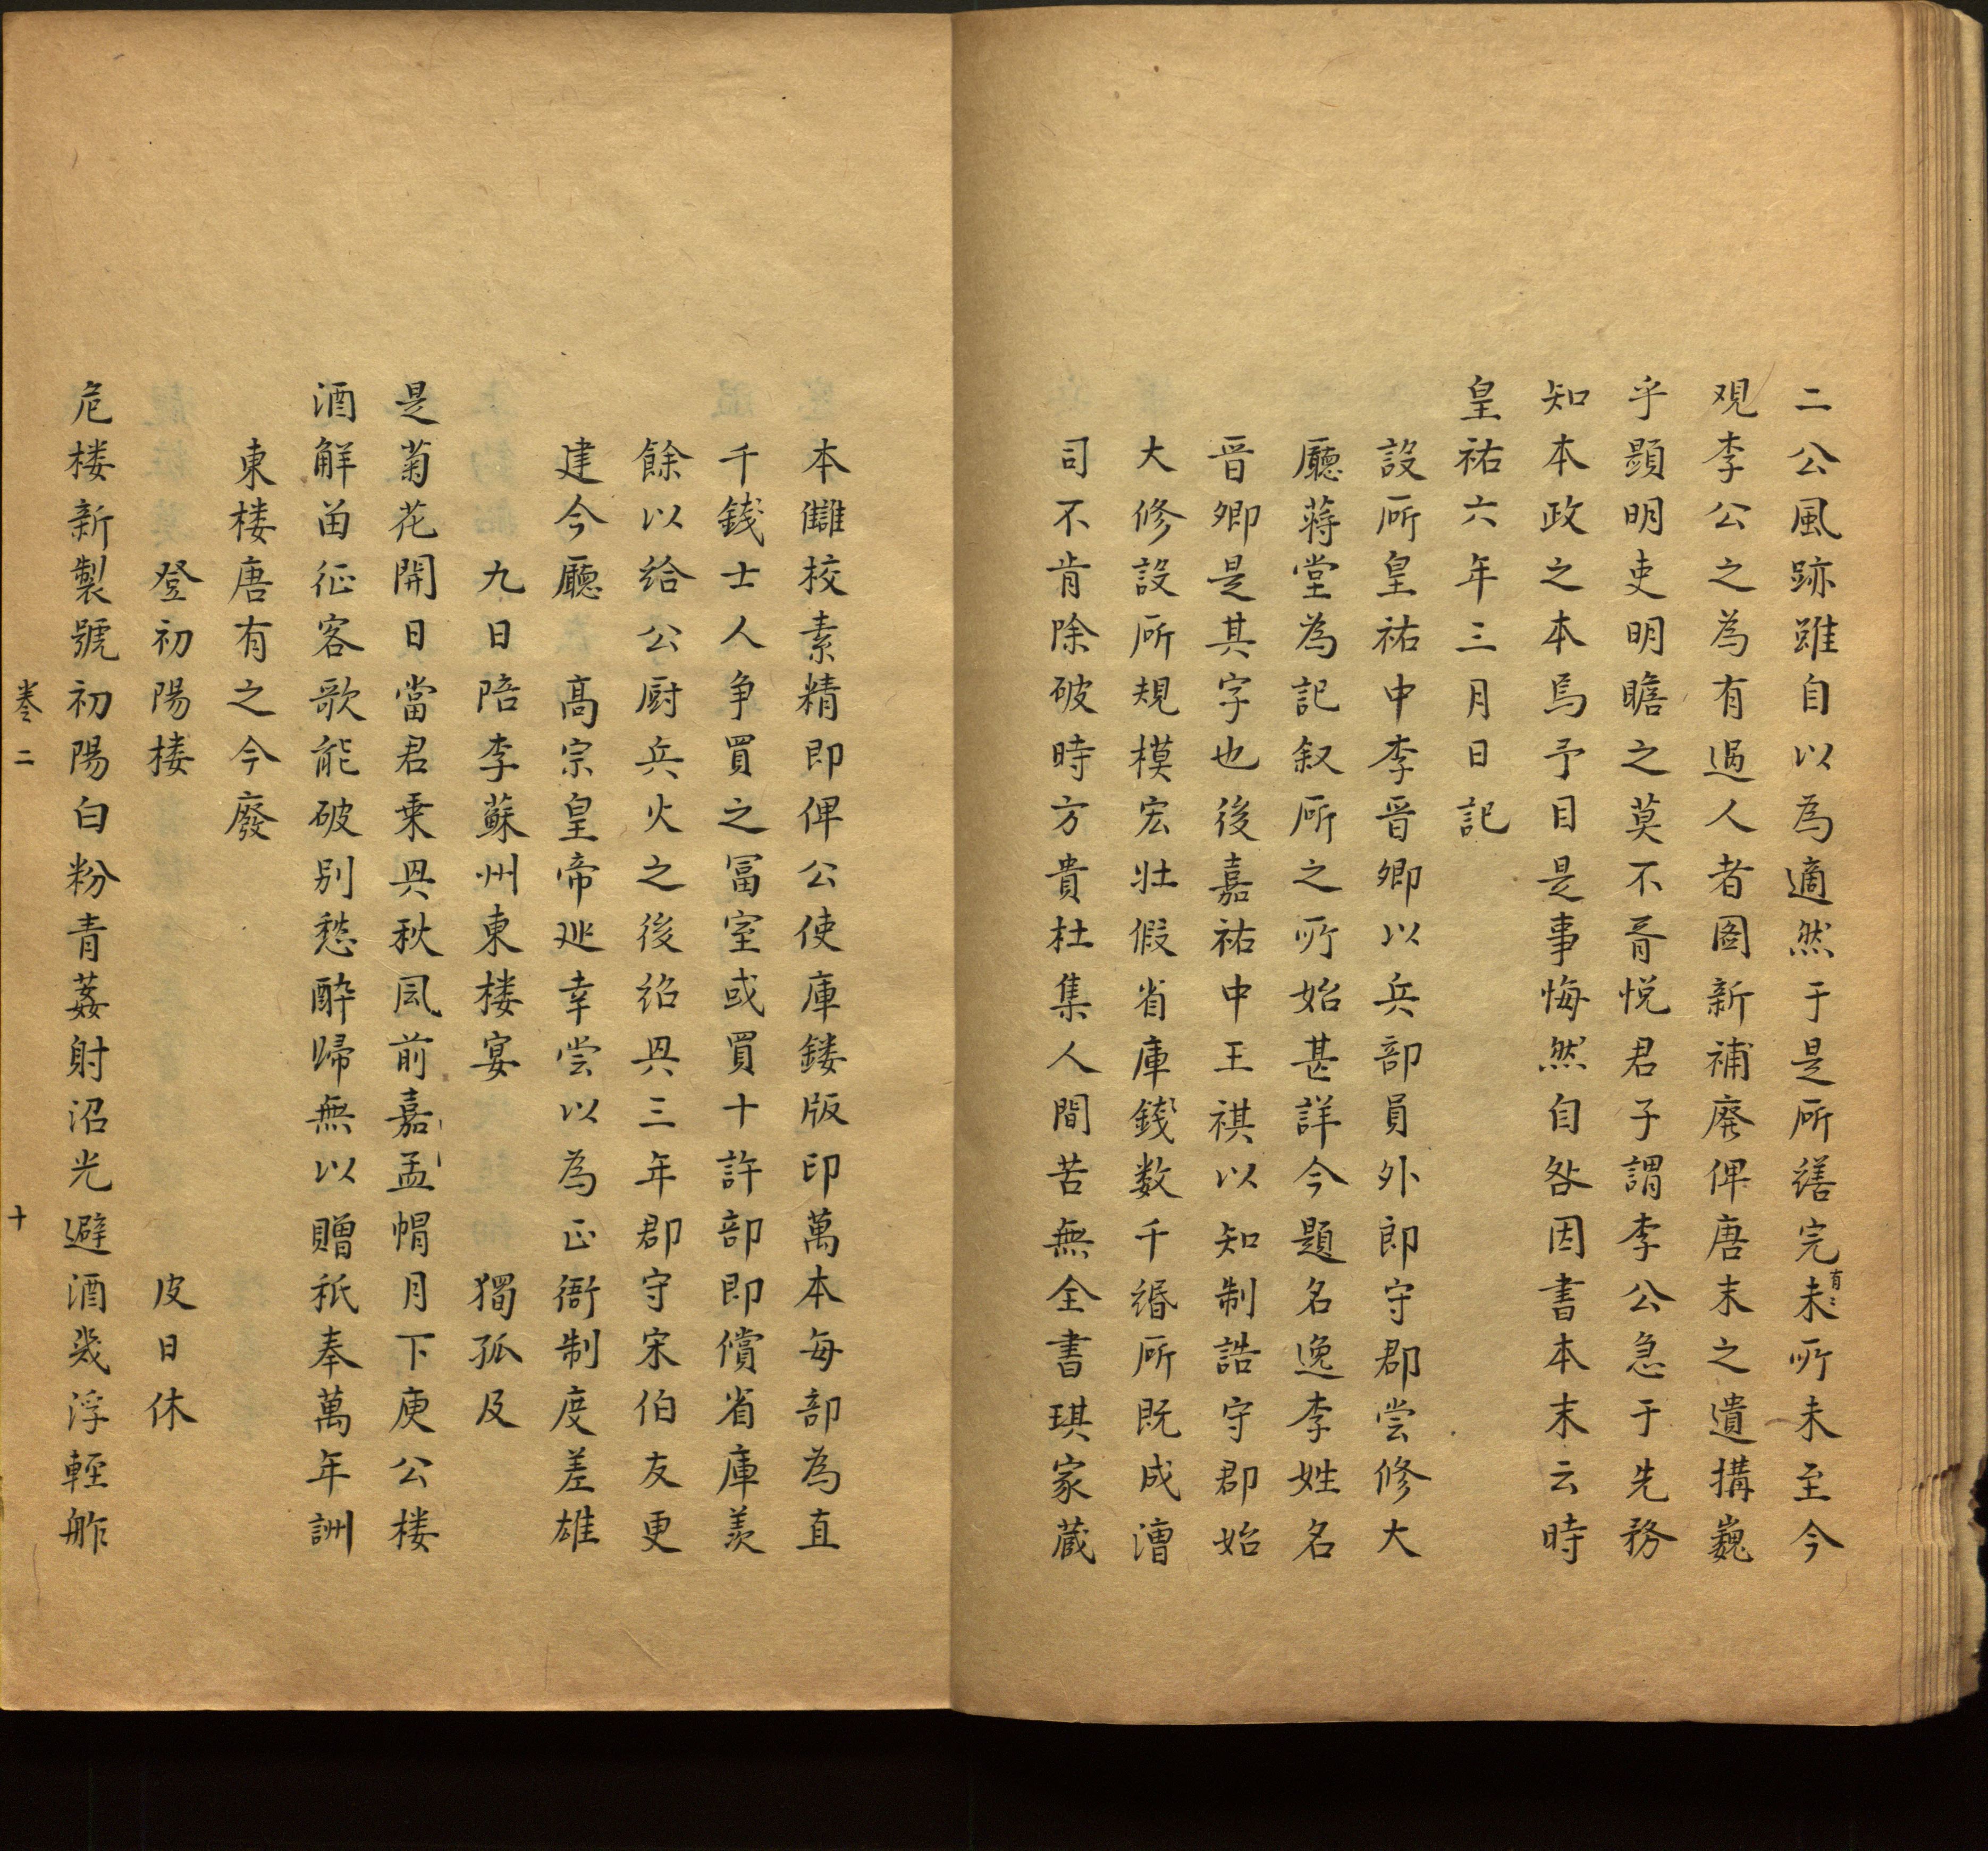 二公風跡雖自以為適然于是㕔繕完未有所未至今
观李公之為有過人者圖新補廢俾唐末之遺搆巍
乎顕明吏明瞻之莫不胥悦君子謂李公急于先務
知本政之本焉予目是事悔然自咎因書本末云時
皇祐六年三月日記
設㕔皇祐中李晋卿以兵部員外郎守郡尝修大
廳蒋堂為記叙㕔之所始甚詳今題名逸李姓名
晋卿是其字也後嘉祐中王祺以知制誥守郡始
大修設㕔規模宏壯假省庫錢数千緡㕔既成漕
司不肯除破時方貴杜集人間苦無全書琪家蔵
本讎校素精即俾公使庫鏤版印萬本每部為直
千錢士人争買之冨室或買十許部即償省庫羡
餘以给公厨兵火之後紹興三年郡守宋伯友更
建今廳　髙宗皇帝廵幸尝以為正衙制度差雄
九日陪李蘇州東楼宴　獨孤及
是菊花開日當君乗興秋風前嘉孟帽月下庾公楼
酒解畄征客歌能破别愁酔歸無以贈秖奉萬年詶
東楼唐有之今廢
登初陽楼　皮日休
危楼新製號初陽白粉青葌射沼光避酒㡬浮輕舴
卷二　十